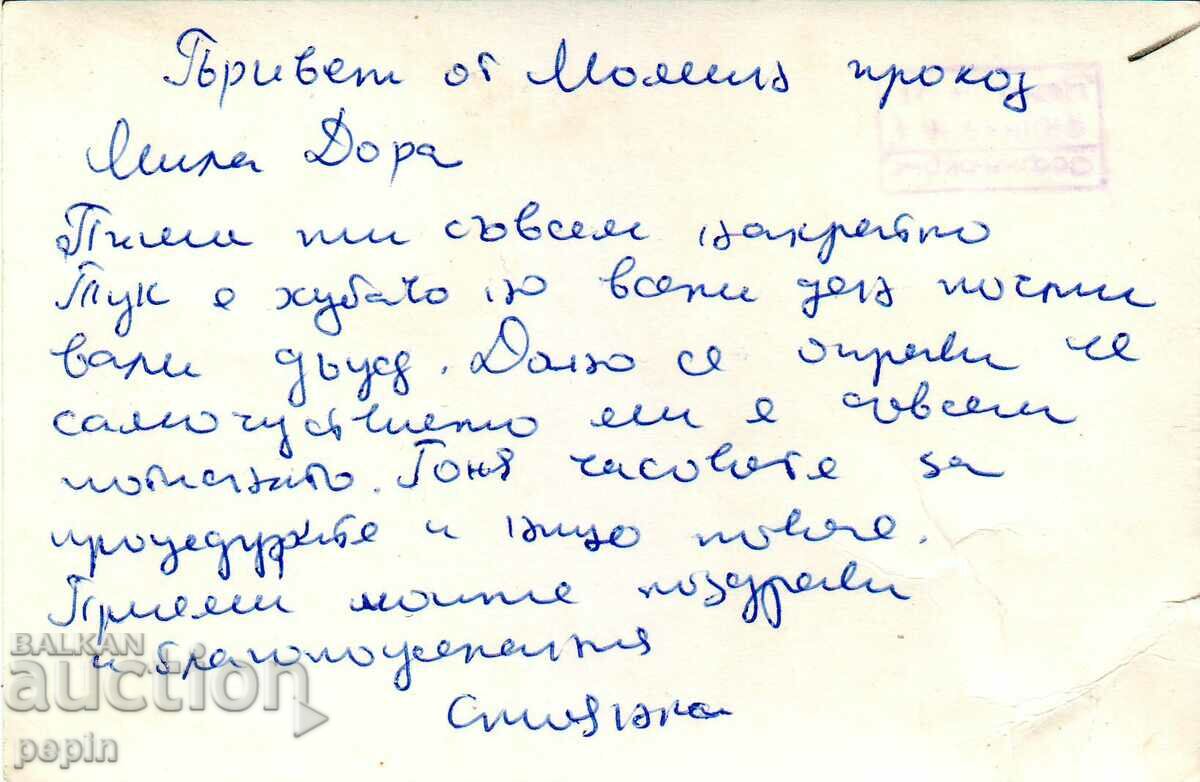 Първет от Момина проход
Мила Дора
Пиша ти съвсем накратко
Тук е хубаво но всеки ден почти
вали дъжд. Долно се оправи че
самочуствието ми е съвсем
потиснато. Гоня часовете за
процедурите и нищо повече.
Приеми моите поздрави
и благопожелания
Стоянка
BALKAN
auction
pepin